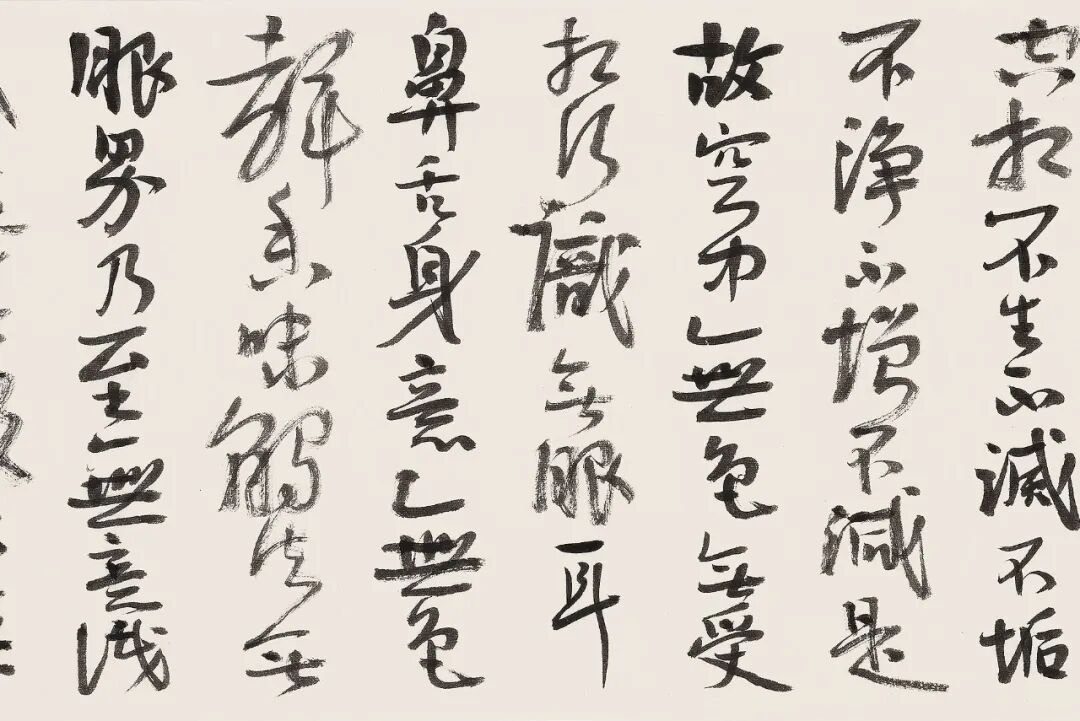 空相不生不滅不垢
不淨不增不減是
故空中無色無受
相行識無眼耳
鼻舌身意無色
聲香味觸法無
眼界乃至無意識